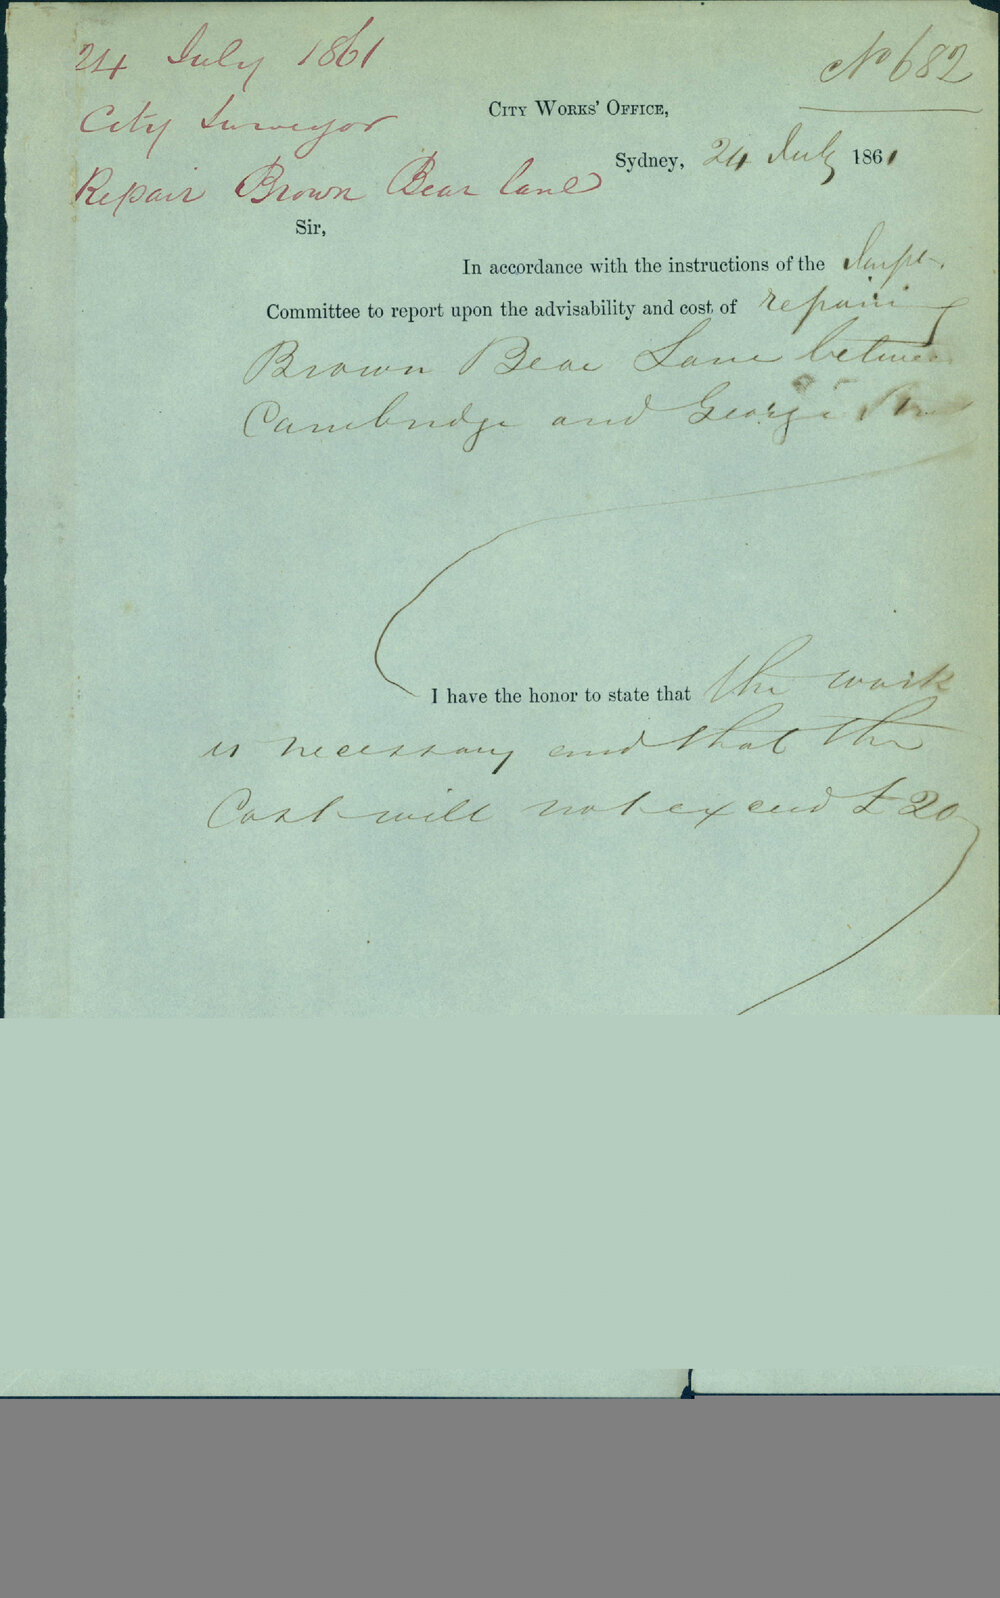 24 July 1861
No 682
City Surveyor
CITY WORKS' OFFICE,
Sydney, 24 July 1861
Repair Brown Bear lane
Sir,
In accordance with the instructions of the
Committee to report upon the advisability and cost of repairing
Brown Bear Lane between
Cambridge and George
I have the honor to state that the work
is necessary and that the
Cost will not exceed £20